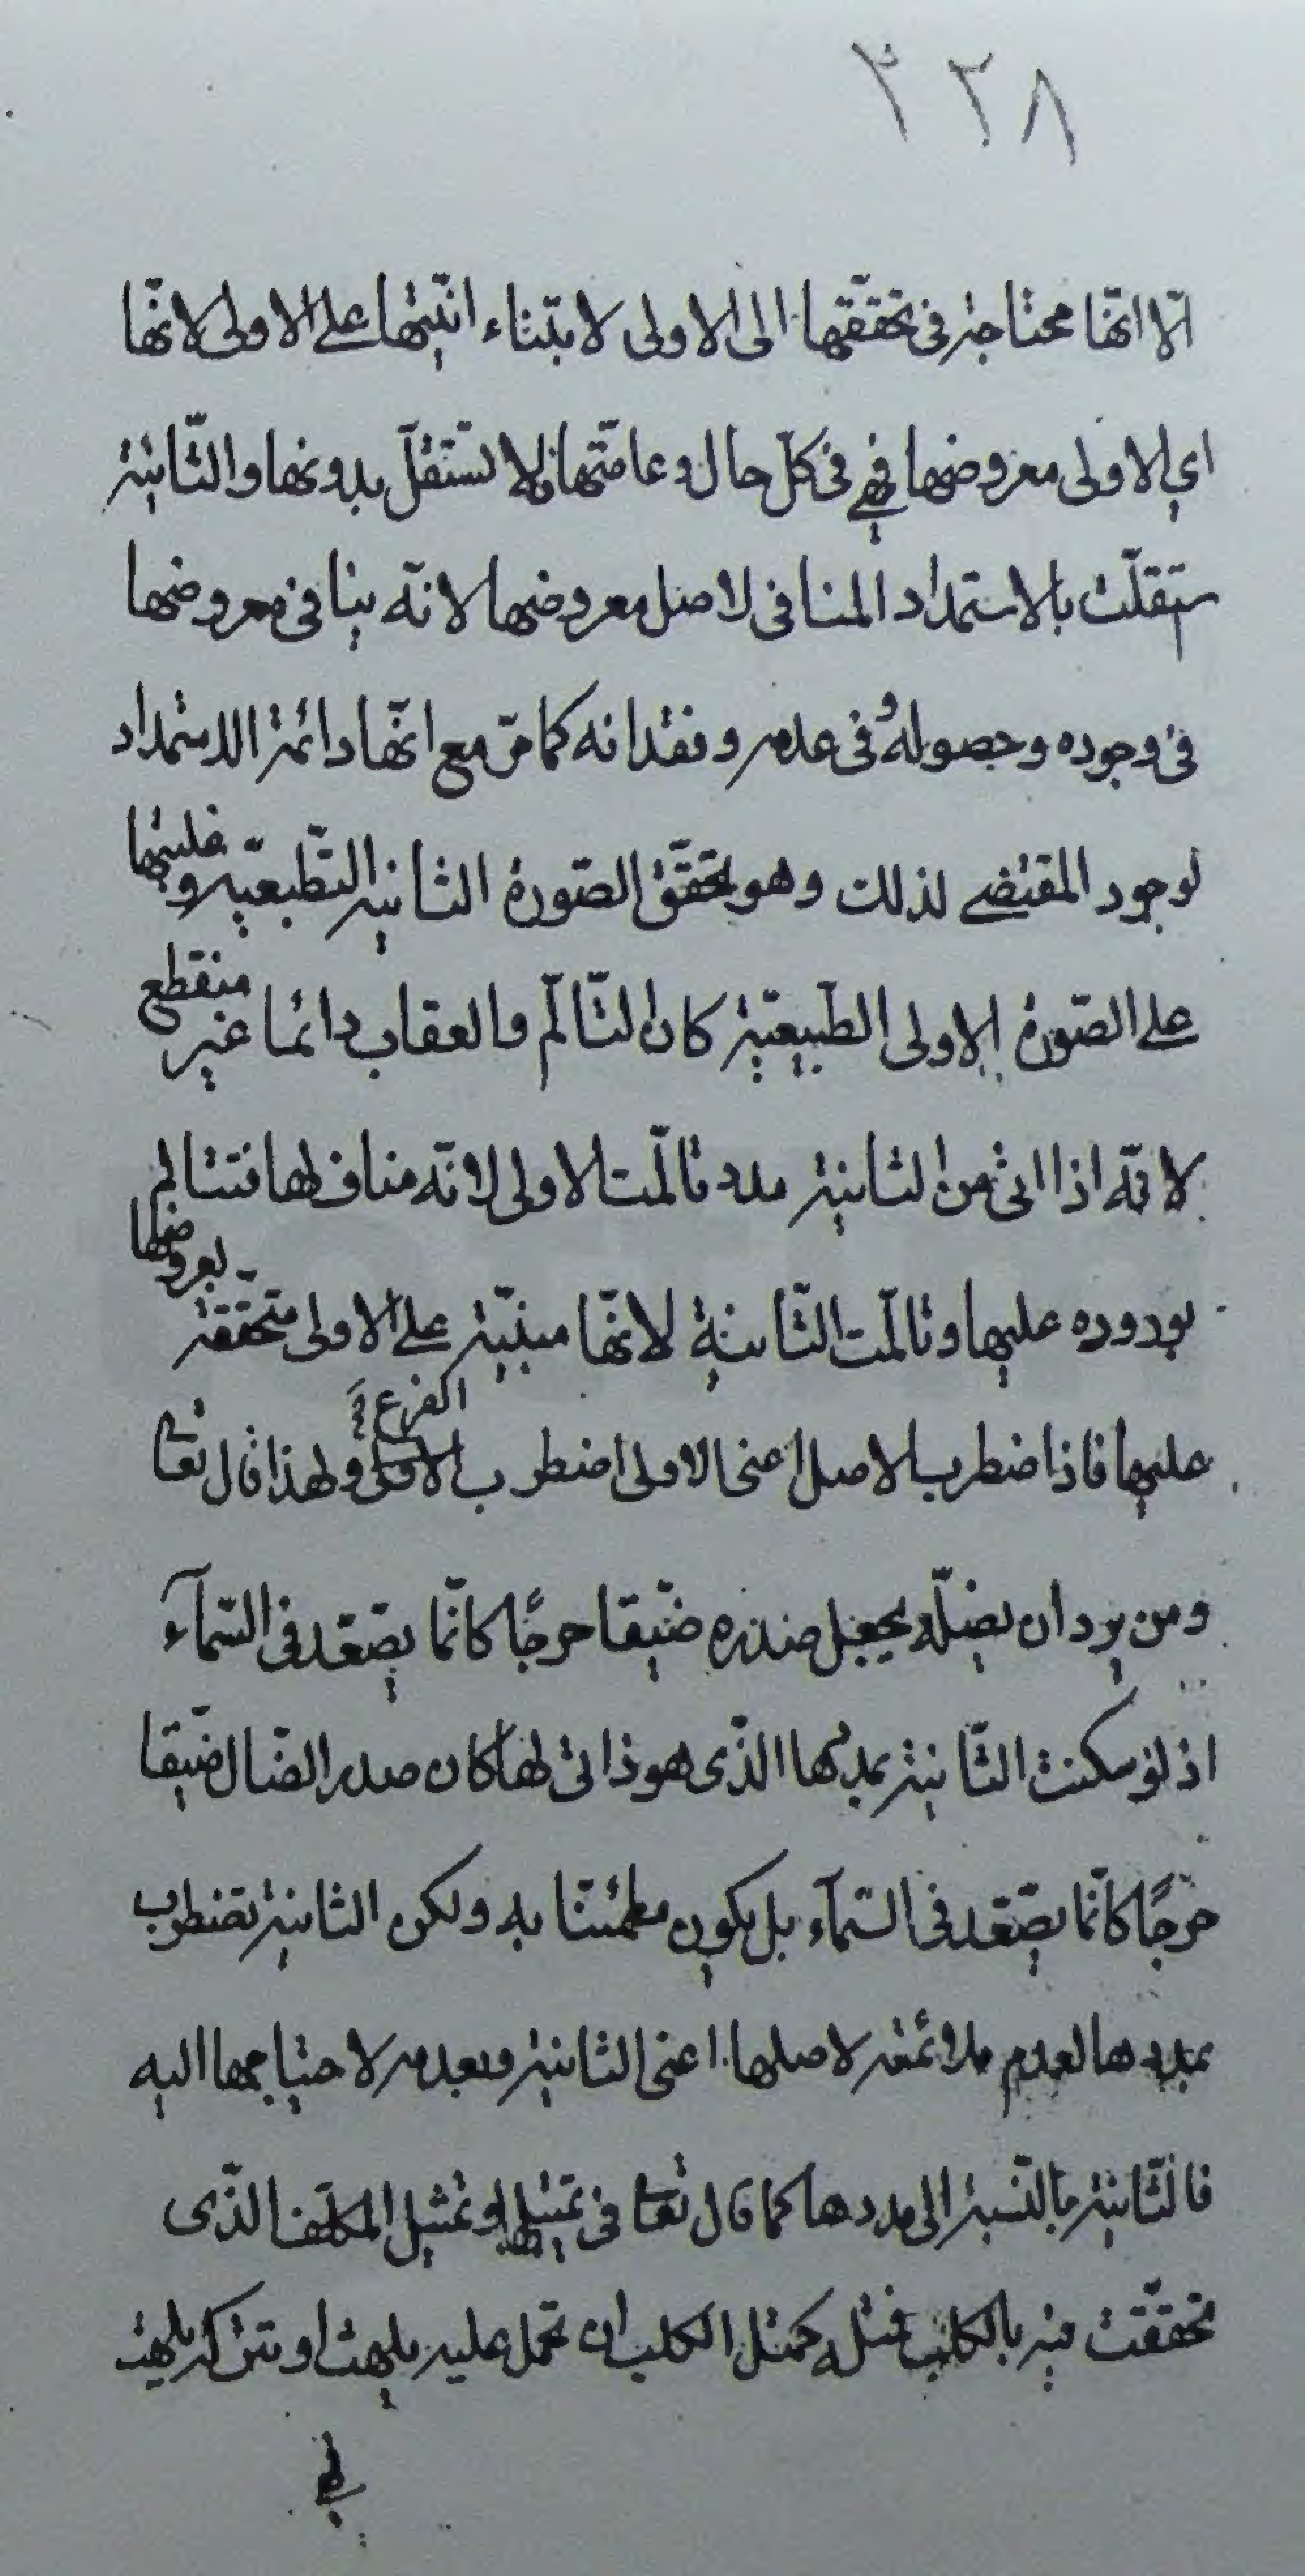 ٣٢٨
الّا انّها محتاجة فى تحقّقها الى الاولى لابتناء انّيّتها على الاولى لانّها
اى الاولى معروضها فهى فى كلّ حال وعامّتها لا تستقلّ بدونها والثّانية
ستقلّت بالاستمداد المنافى لاصل معروضها لانّه ينافى معروضها
فى وجوده وحصوله وفى عدمه وفقدانه كما مرّ مع انّها دائمة الاستمداد
لوجود المقتضى لذلك وهو تحقّق الصّورة الثانية التّطبعيّة وغلبتها
على الصّورة الاولى الطّبيعيّة كان التّالّم والعقاب دائما غير منقطع
لانّه اذا اتى من الثانية مدد تالّمت الاولى لانّه مناف لها فتتالم
بوروده عليها وتالّمت الثّانية لانّها مبنيّة على الاولى متحّققة بعروضها
عليها فاذا اضطرب الاصل اعنى الاولى اضطرب الفرع ولهذا قال تعا
ومن يرد ان يضلّه يجعل صدره ضيّقا حرجًا كانّما يصّعّد فى السّمآء
اذ لو سكنت الثّانية بمددها الذّى هو ذاتى لها لما كان صدر الضّال ضيّقا
حرجًا كانّما يصّعّد فى السّمآء بل يكون مطمئنّا به ولكن الثانية تضطرب
بمددها لعدم ملائمته لاصلها اعنى الثانية وبعدمه لاحتياجها اليه
فالثّانية بالنّسبة الى مددها كما قال تعا فى تمثيلها او تمثيل المكلّف الذّى
تحقّقت فيه بالكلب فمثله كمثل الكلب ان تحمل عليه يلهث او تتركه يلهث
فهى